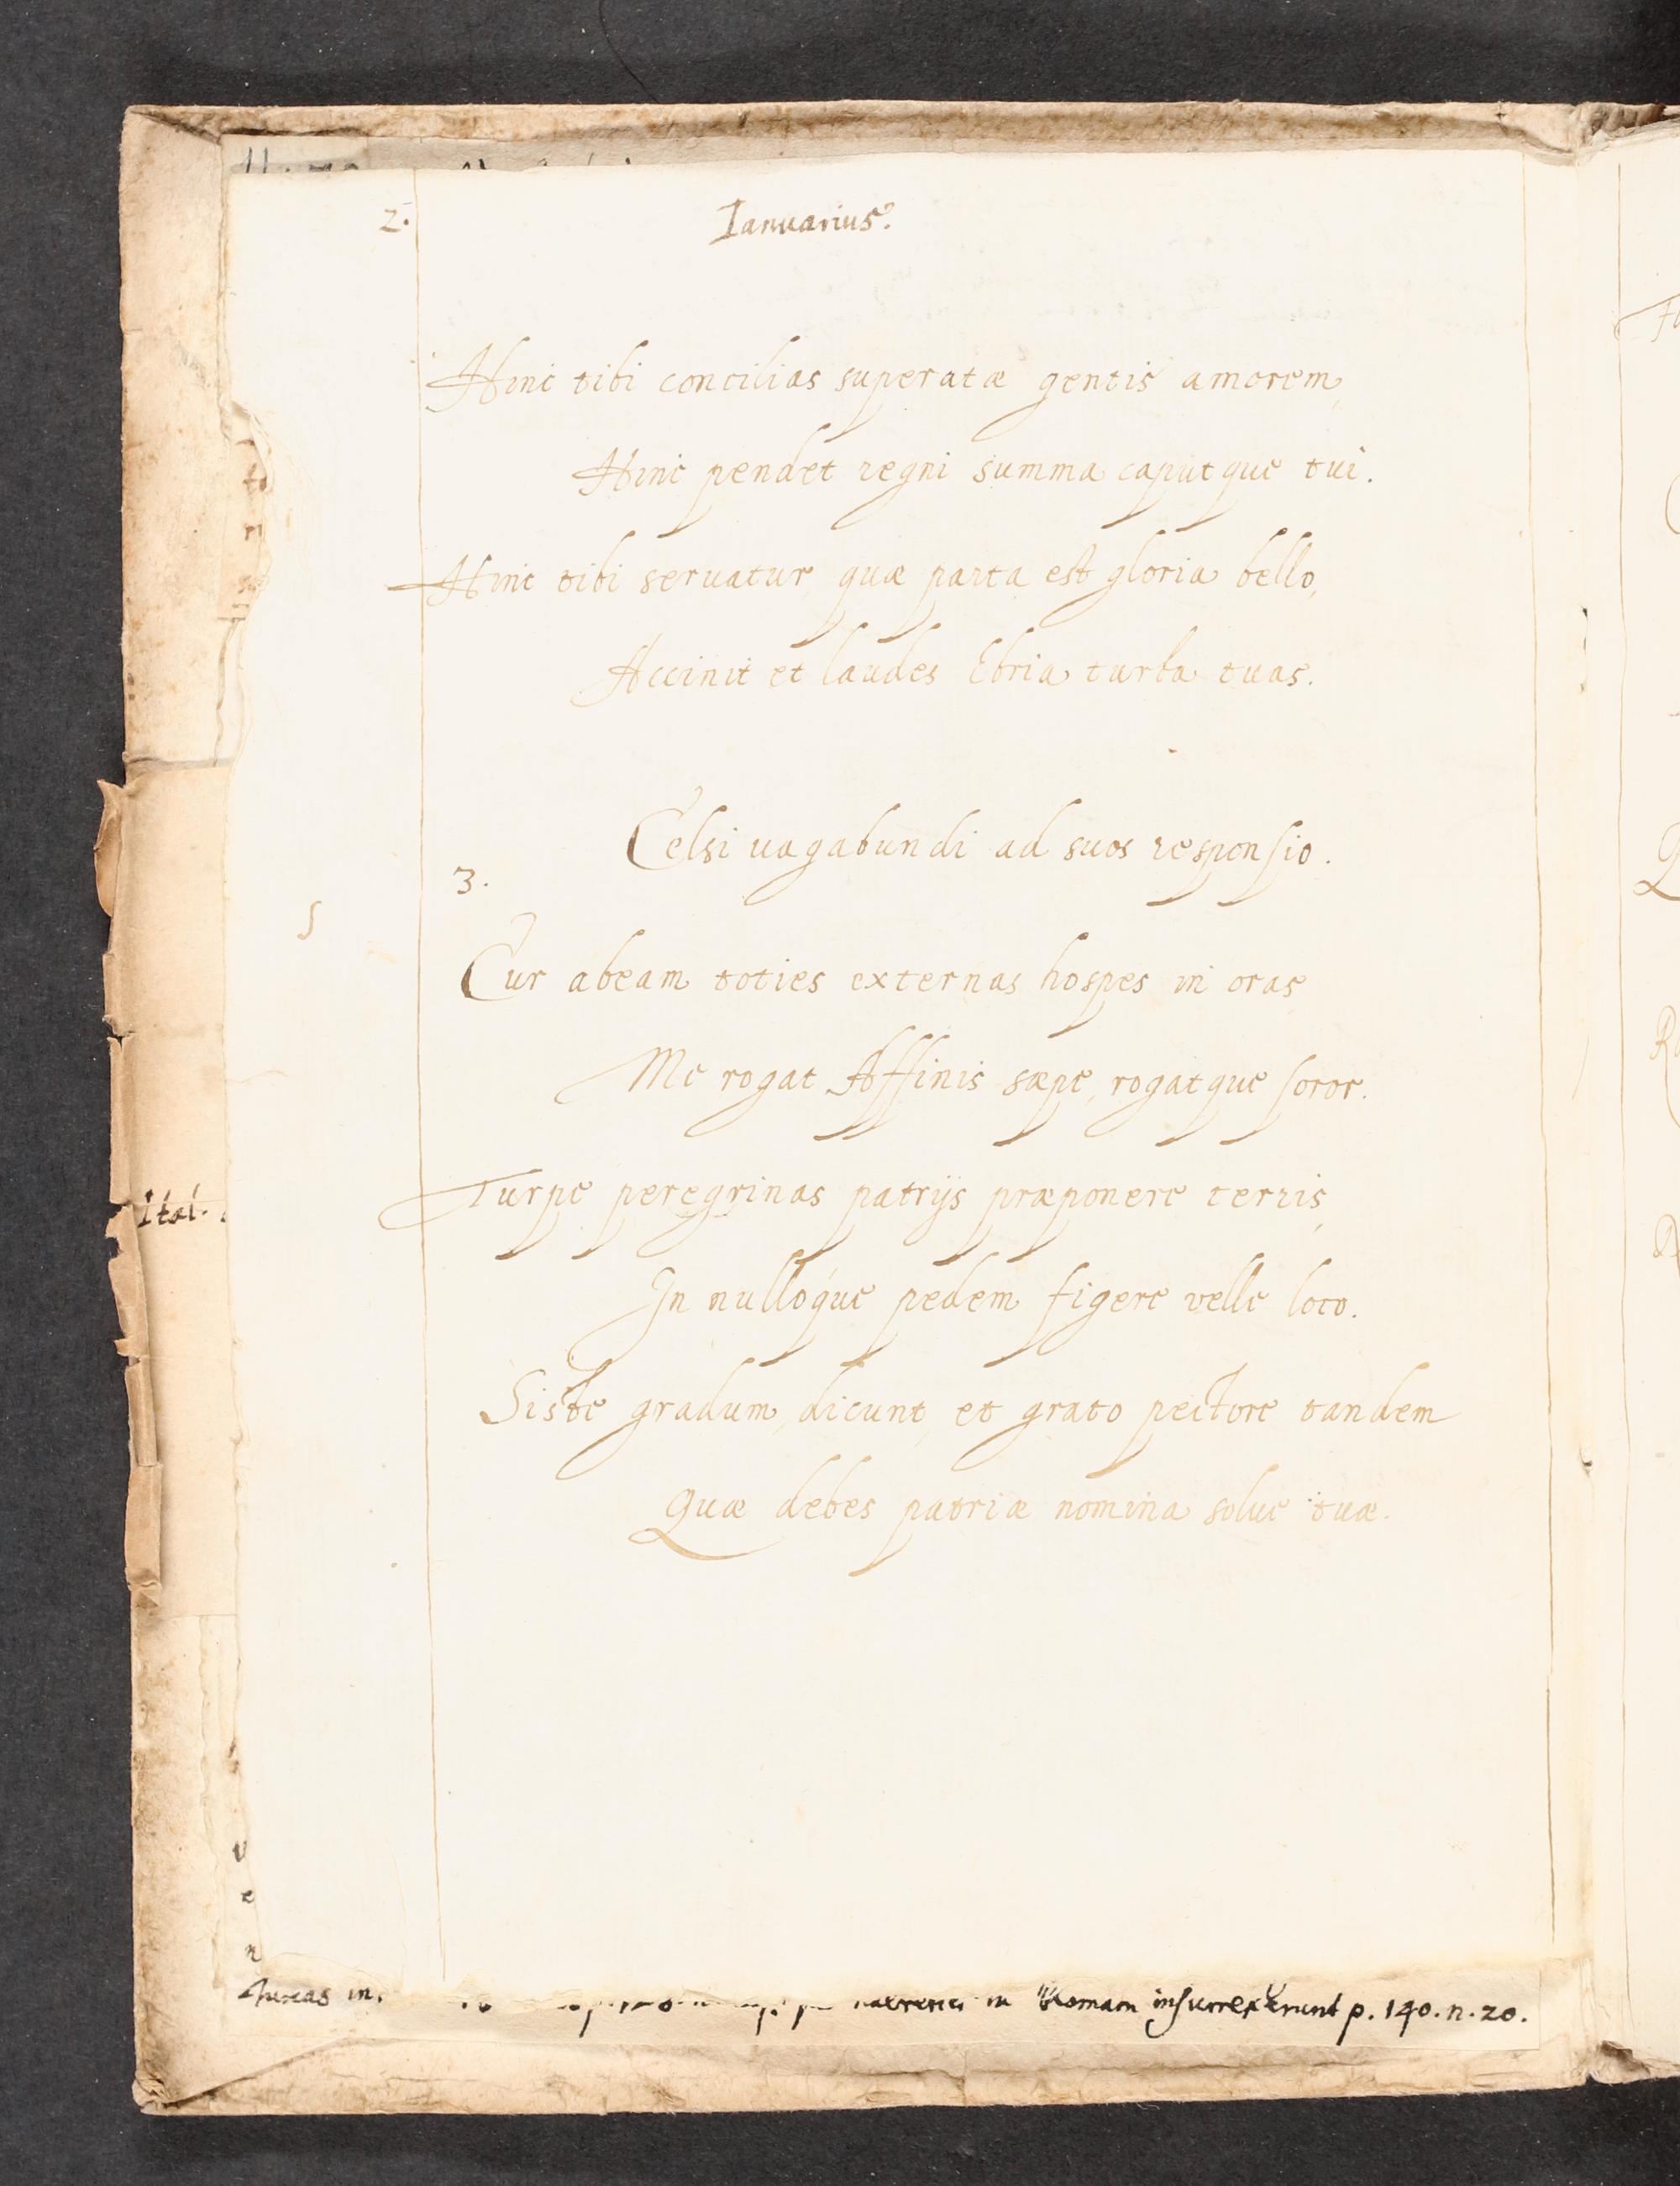 2.
Ianuarius.
Hinc tibi concilias superatæ gentis amorem,
Hinc pendet regni summa caputque tui.
Hinc tibi seruatur, quæ parta est gloria bello,
Accinit et laudes Ebria turba tuas.
Celsi uagabundi ad suos responsio.
3.
Cur abeam toties externas hospes in oras,
Me rogat Affinis sæpe, rogatque soror.
Turpe peregrinas patrijs præponere terris,
In nulloque pedem figere velle loco.
Siste gradum, dicunt, et grato pectore tandem
Quæ debes patriæ nomina solue tuæ.
Ital.
in Romam insurrexerunt p. 140. n. 20.